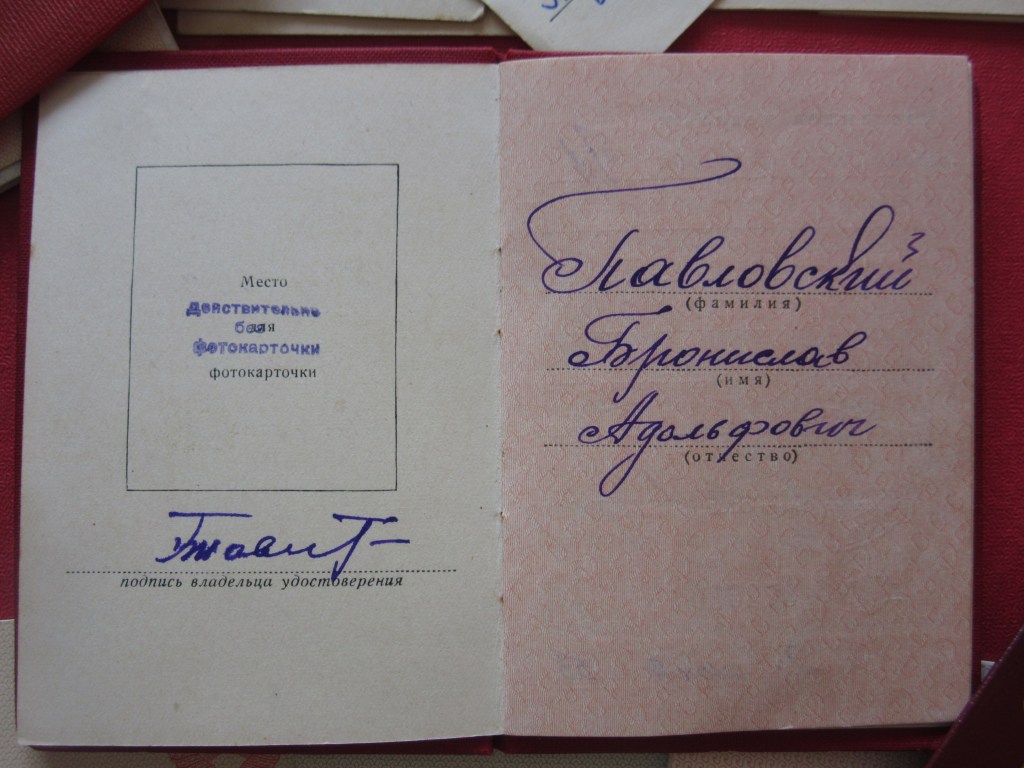 Место
Действительно
без
для
фотокарточки
фотокарточки
подпись владельца удостоверения
Павловский
(фамилия)
Бронислав
(имя)
Адольфович
(отчество)